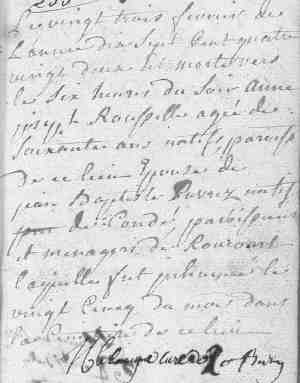 Le vingt trois fevrier de
L'année dix Sept Cent quatre
vingt deux est morte vers
les Six heures du Soir Anne
joseph Rousselle agée de
Soixante ans natif paroisse
De ce lieu Epouse de
jean Baptiste natif
de Condé paroissien
et menager de Roucourt
laquelle fut inhumée le
vingt Cinq du mois dans
de ce lieu